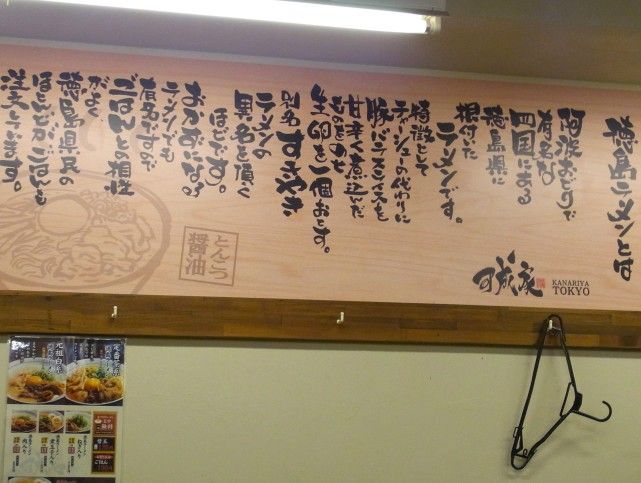 徳島ラーメンとは
阿波おどりで
有名な
四国にある
徳島県に
根付いた
ラーメンです。
特徴として
チャーシューの代わりに
豚バラスライスを
甘辛く煮込んだ
ものをのせ
生卵を一個おとす。
別名すきやき
ラーメンの
異名を頂く
ほどです。
おかずになる
ラーメンでも
有名ですので
ごはんとの相性
がよく
徳島県民の
ほとんどがごはんも
注文します。
とんこつ
醤油
可成家
KANARIYA
TOKYO